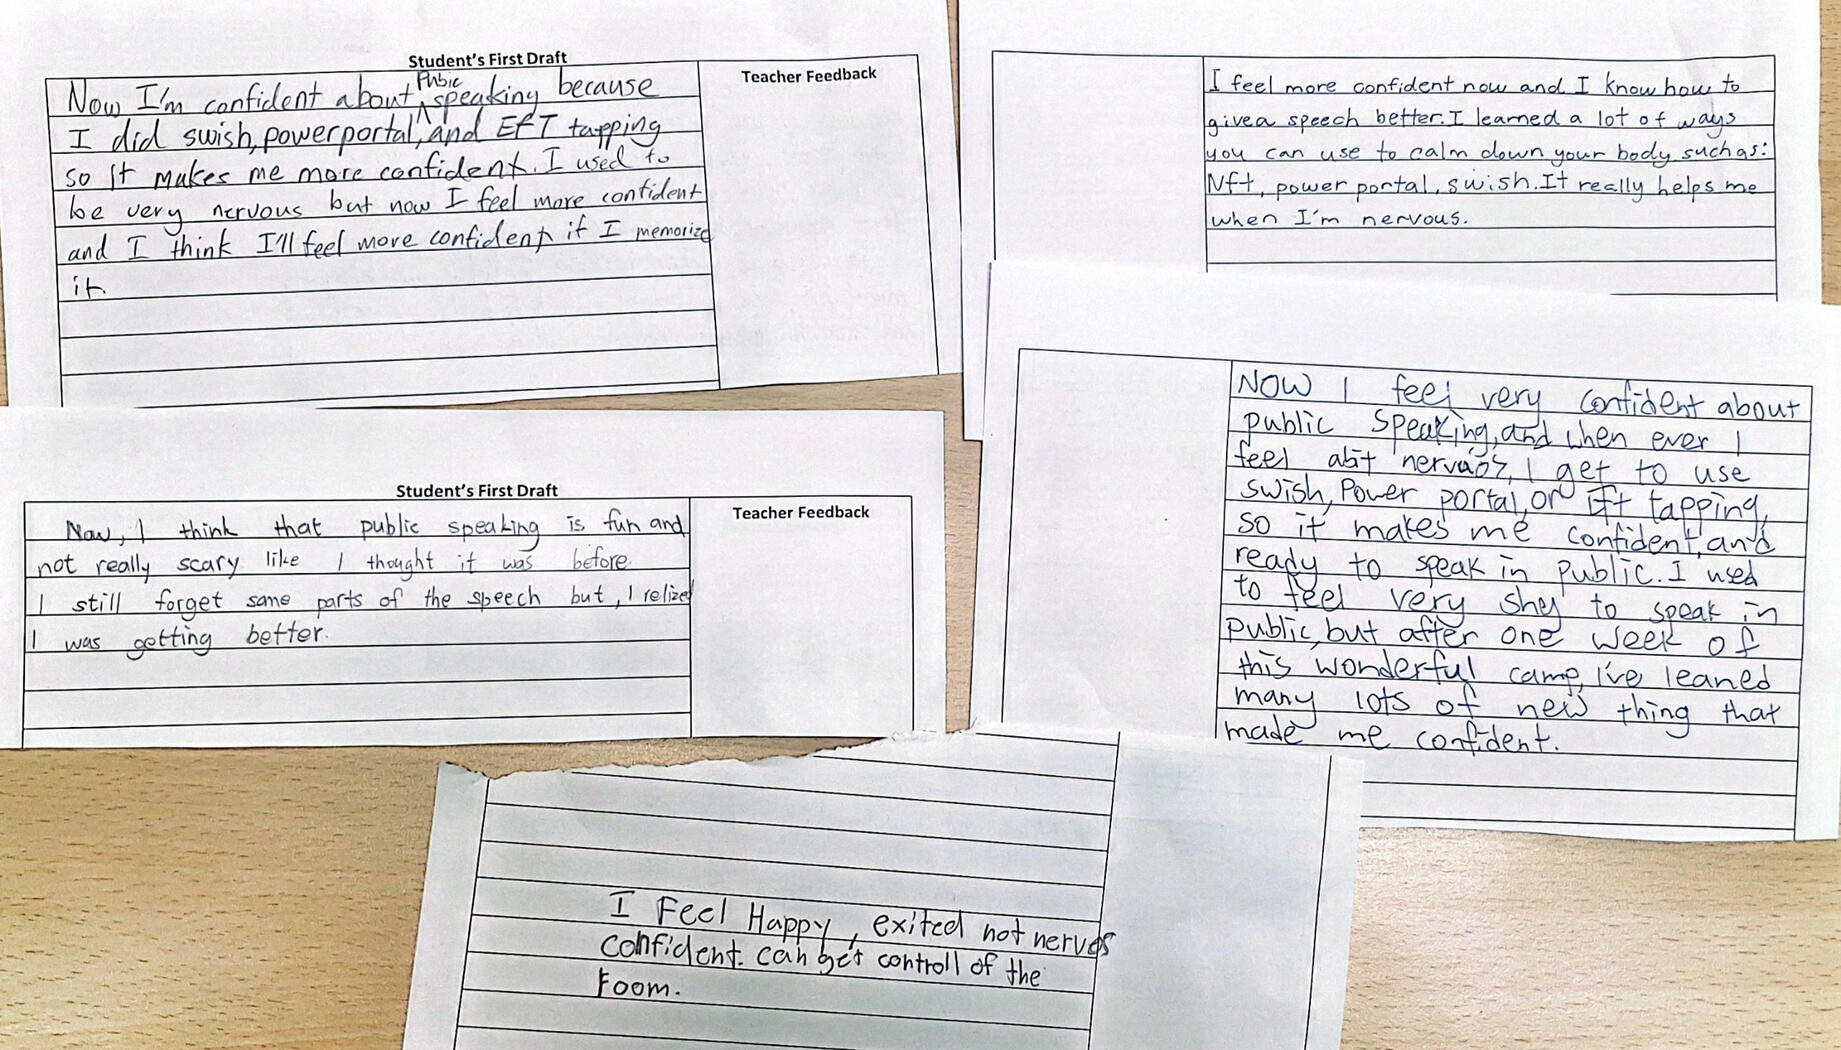 Student's First Draft
Teacher Feedback
Now I'm confident about Pubic speaking because
I did swish, powerportal, and EFT tapping
so it makes me more confident. I used to
be very nervous but now I feel more confident
and I think I'll feel more confident if I memorize
it.
I feel more confident now and I know how to
give a speech better. I learned a lot of ways
you can use to calm down your body such as:
Nft, power portal, swish. It really helps me
when I'm nervous.
Student's First Draft
Teacher Feedback
Now, I think that public speaking is fun and
not really scary like I thought it was before.
I still forget some parts of the speech but, I relized
I was getting better.
NOW I feel very confident about
public speaking, and when ever I
feel abit I get to use
swish, Power portal, or tapping,
so it makes me confident, and
ready to speak in public. I used
to feel very shy to speak in
public, but after one week of
this wonderful camp, i've leaned
many lots of new thing that
made me confident.
I Feel Happy, exited not nervos
confident. can get controll of the
room.